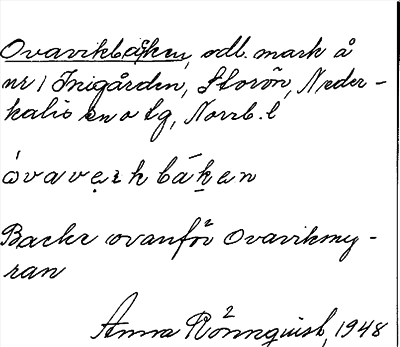 Ovavikbäcken, odl. mark å
nr 1 Frigården, Storön, Neder-
kalix sn o tg, Norrb. l
Backe ovanför Ovavikmy-
ran
Anna Rönnquist, 1948